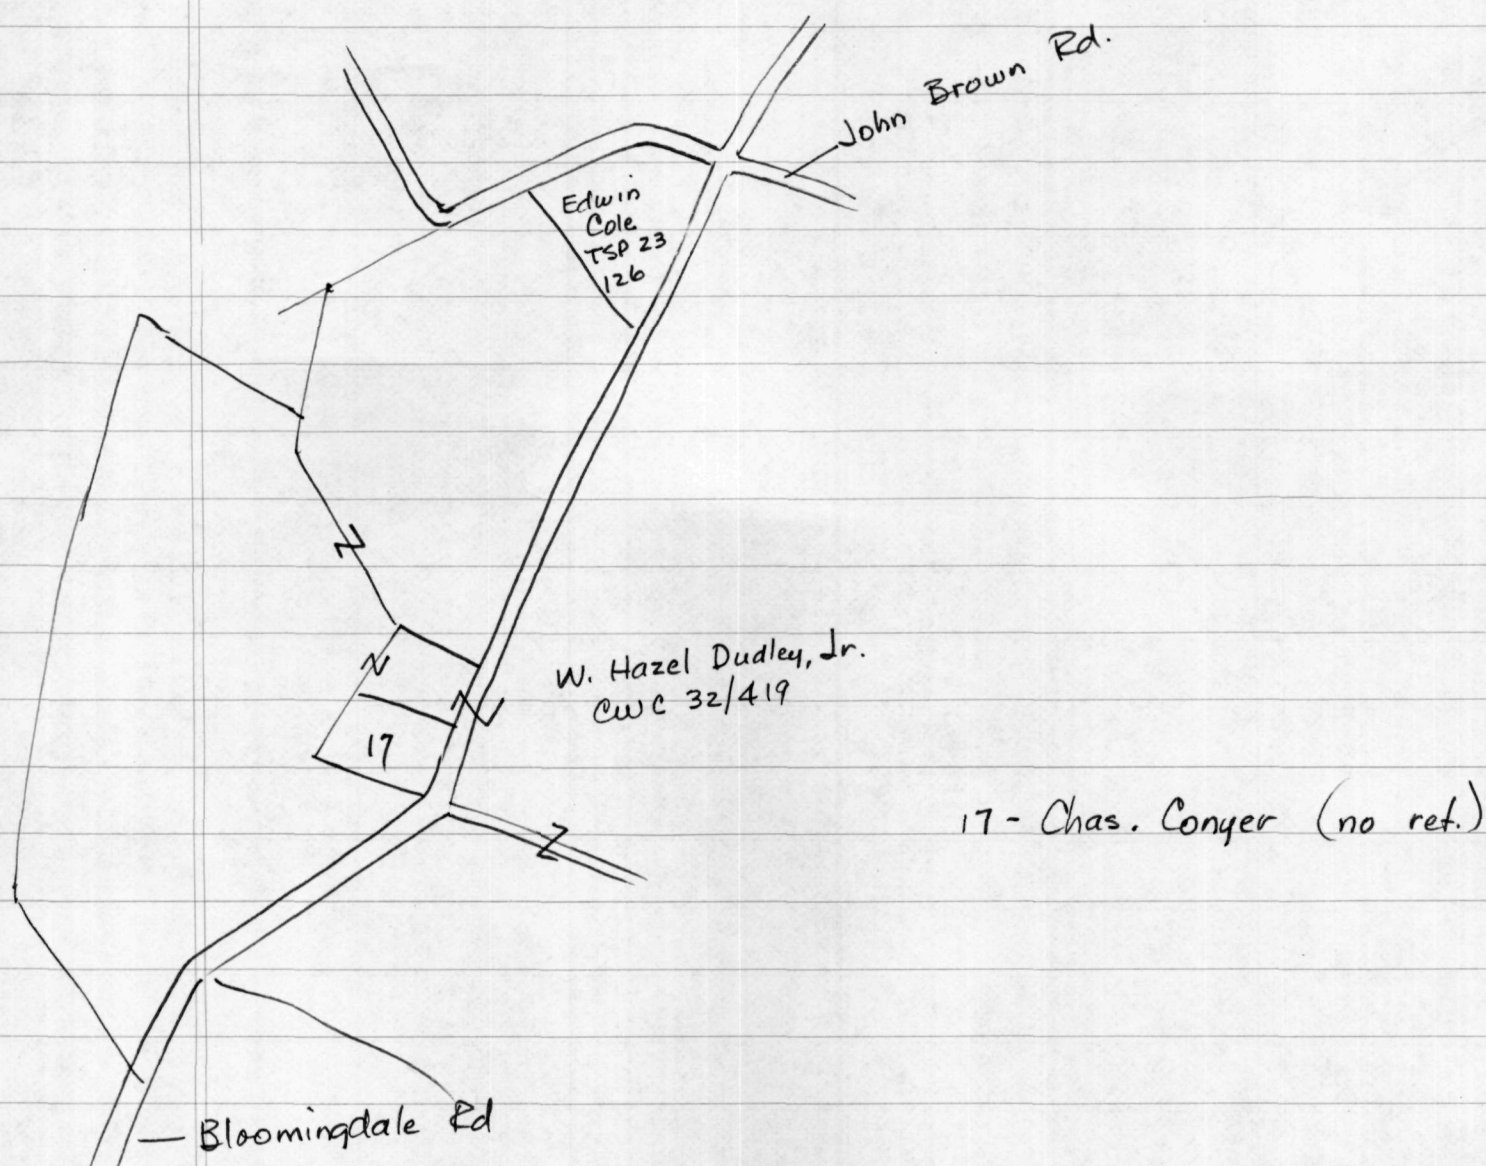 John Brown Rd.
Edwin
Cole
TSP 23
126
W. Hazel Dudley, Jr.
CWC 32/419
17
17 - Chas. Conyer (no ref.)
Bloomingdale Rd